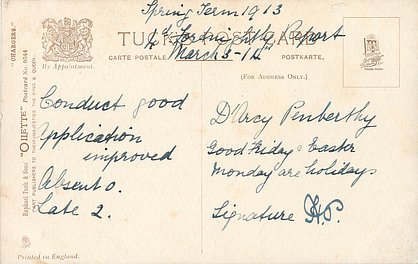 Spring Term 1913
TUCK'S POST CARD
Fortnightly Report
March 3-14
CARTE POSTALE.
POSTKARTE.
By Appointment.
(FOR ADDRESS ONLY.)
"CHARGERS"
Raphael Tuck & Sons' "OILETTE" Postcard No. 9544
ART PUBLISHERS TO THEIR MAJESTIES THE KING & QUEEN.
Conduct good
Application
improved
Absent 0.
Late 2.
D'Arcy Penberthy
Good Friday & Easter
Monday are holidays
Signature
Printed in England.